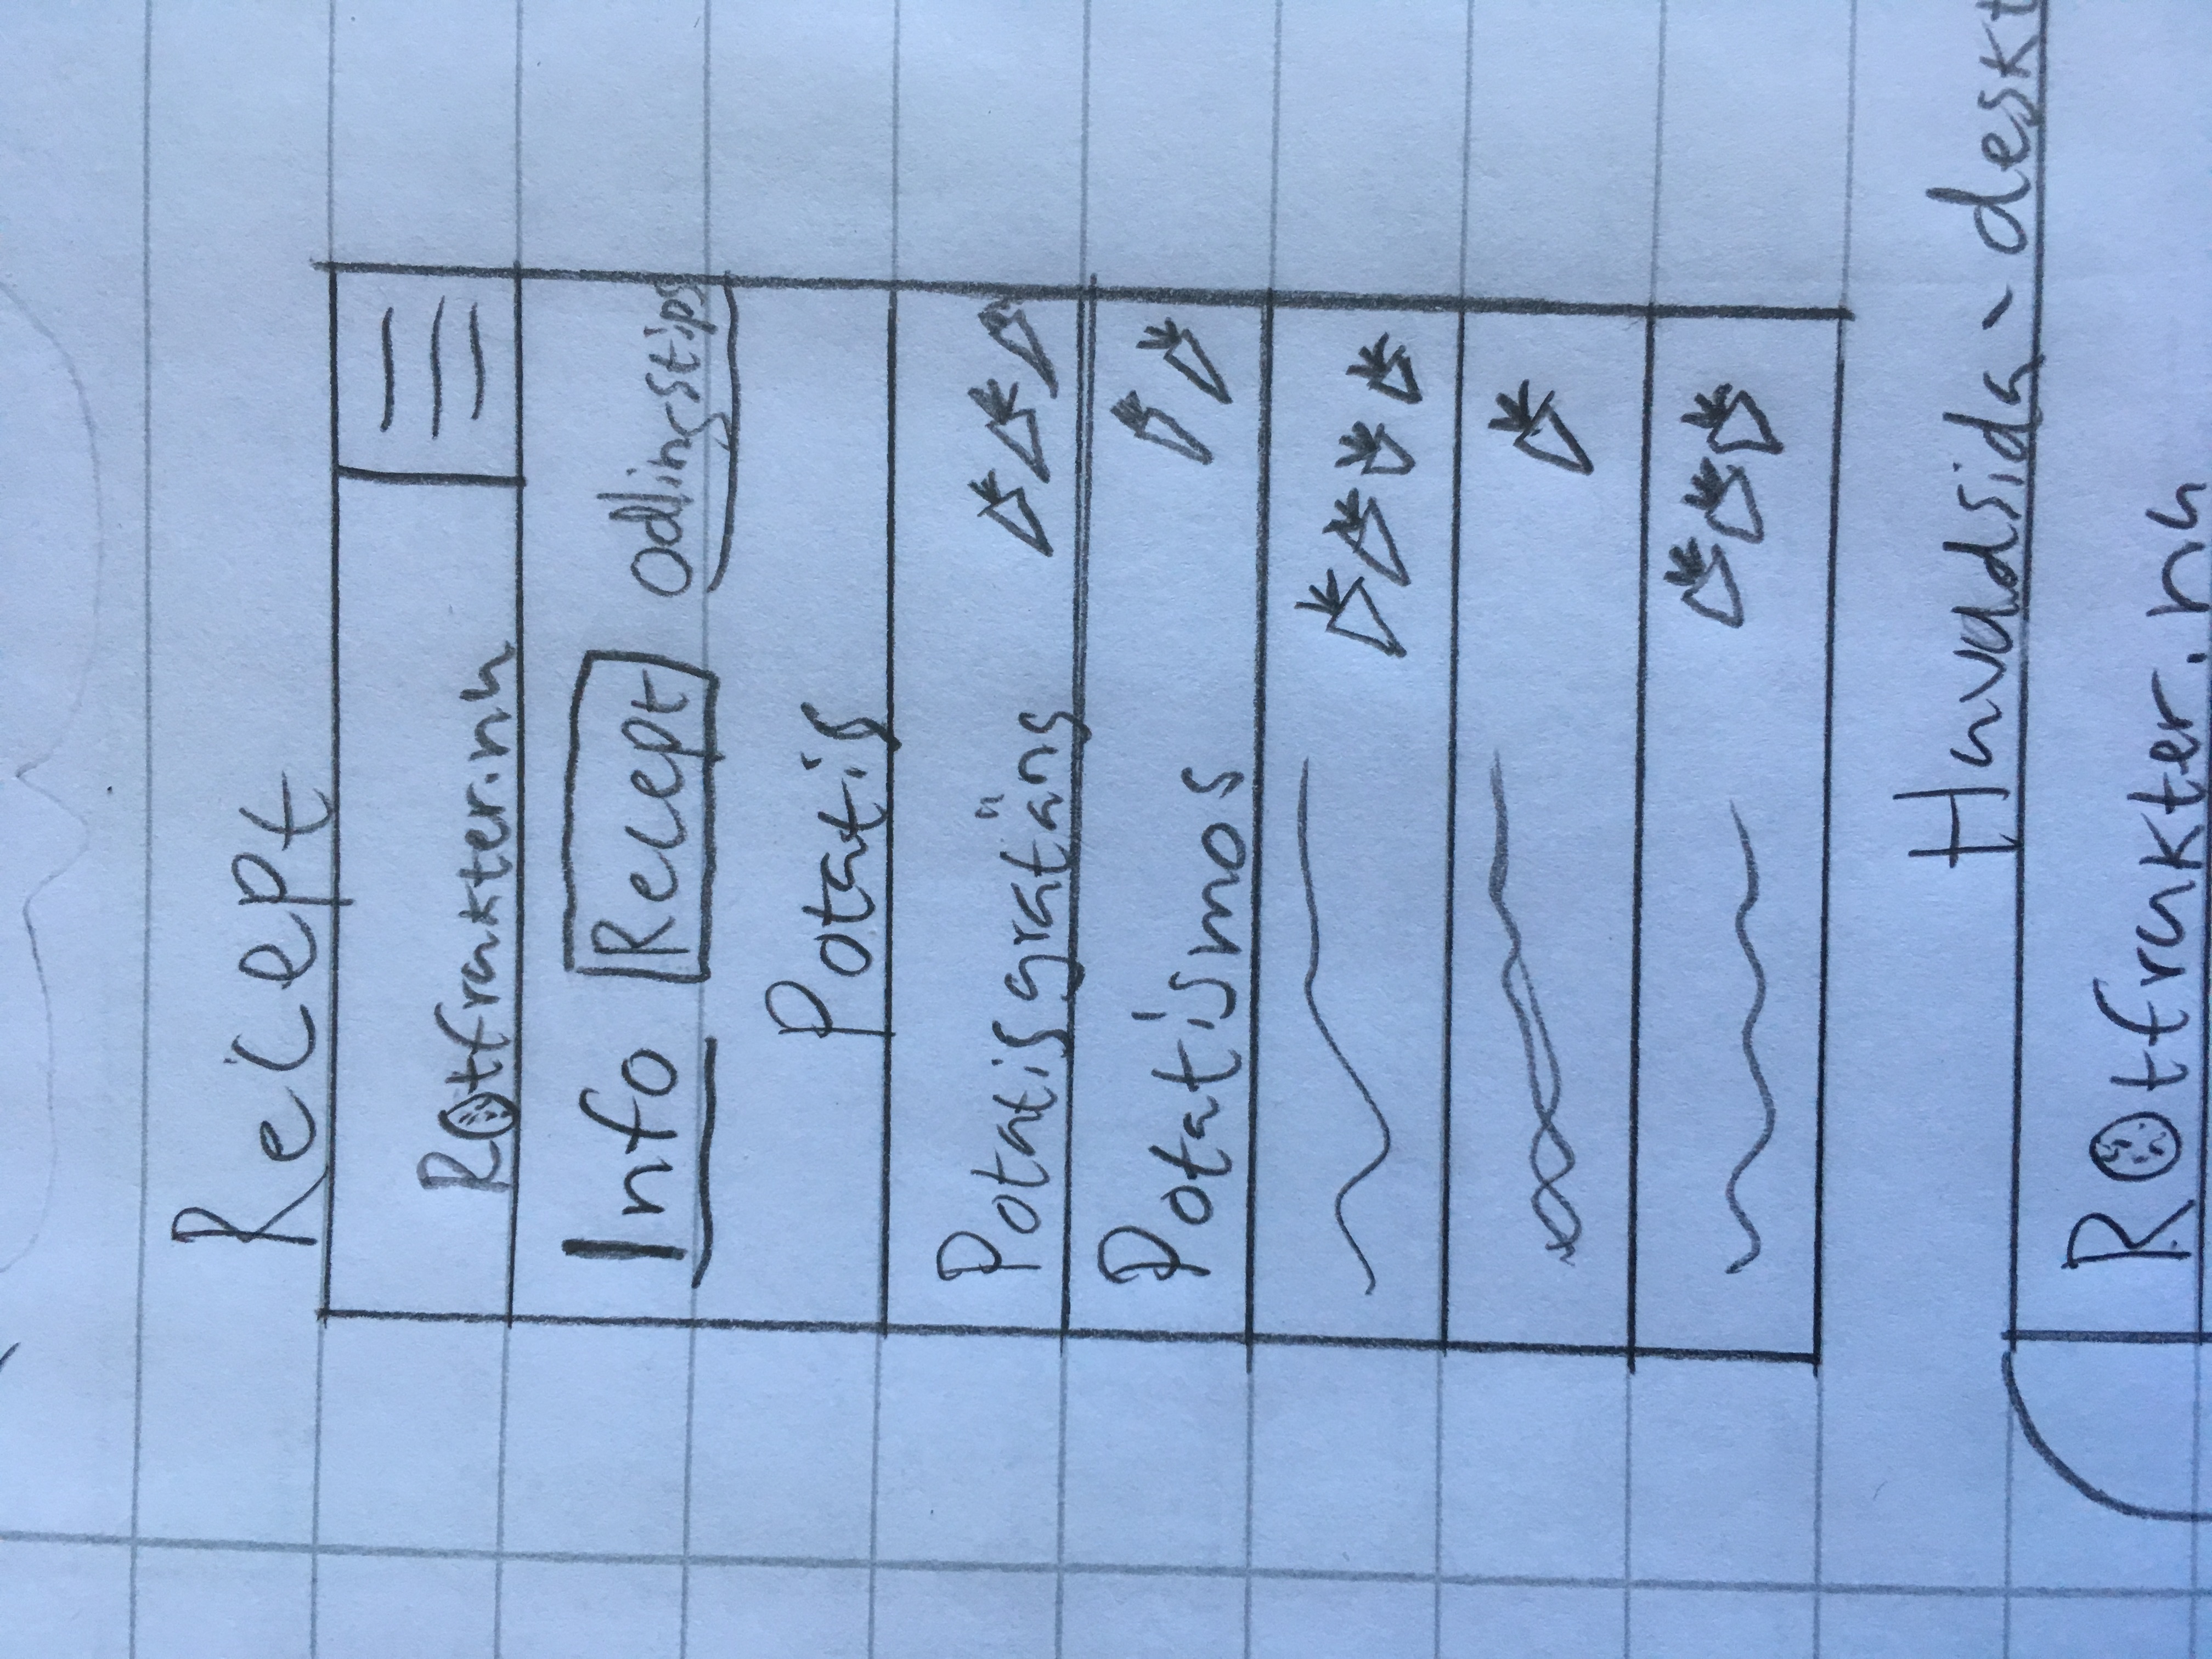 Recept
Rotfrukter.nu
Info Recept Odlingstips
Potatis
Potatisgratäng
Potatismos
Rotfrukter.nu